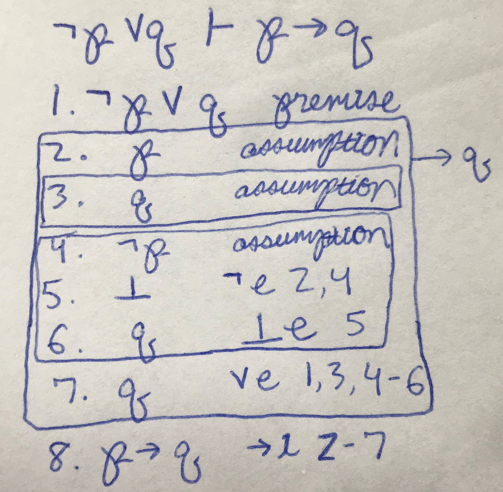 ¬p ∨ q ⊢ p → q
1. ¬p ∨ q premise
2. p assumption → q
3. q assumption
4. ¬p assumption
5. ⊥ ¬e 2,4
6. q ⊥e 5
7. q ∨e 1,3,4-6
8. p → q →i 2-7